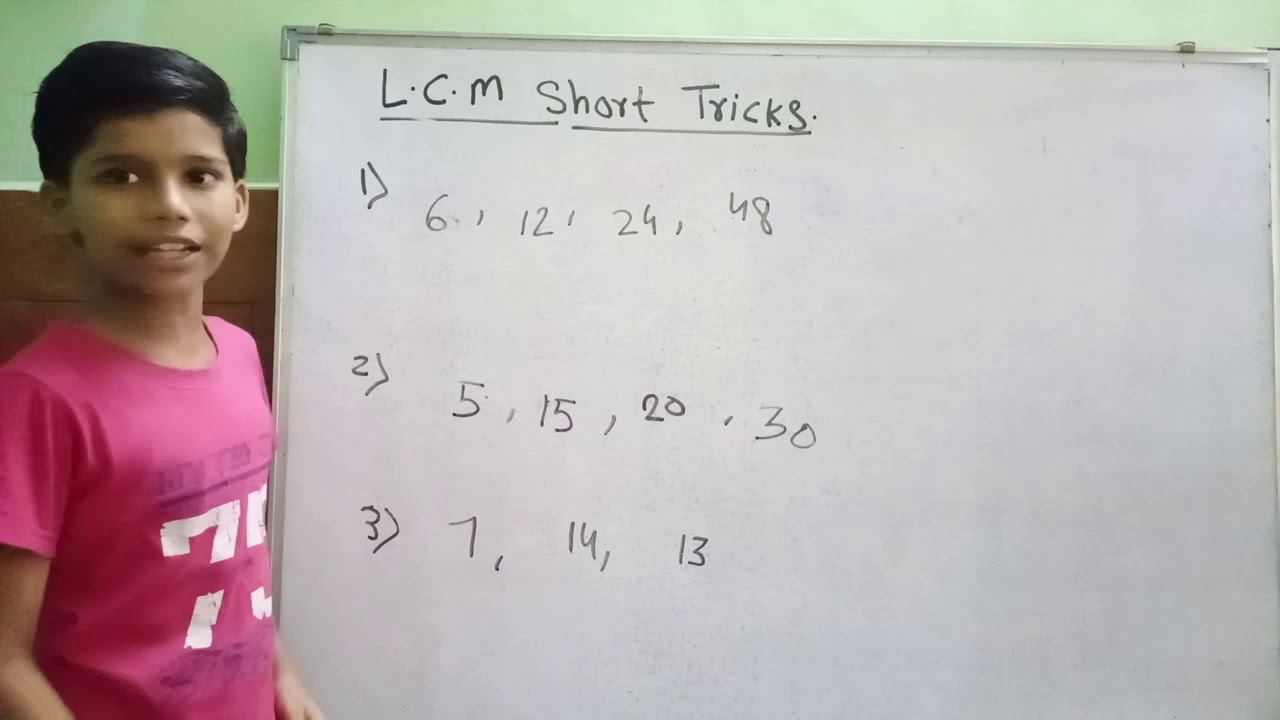 L.C.M Short Tricks.
1) 6, 12, 24, 48
2) 5, 15, 20, 30
3) 7, 14, 13